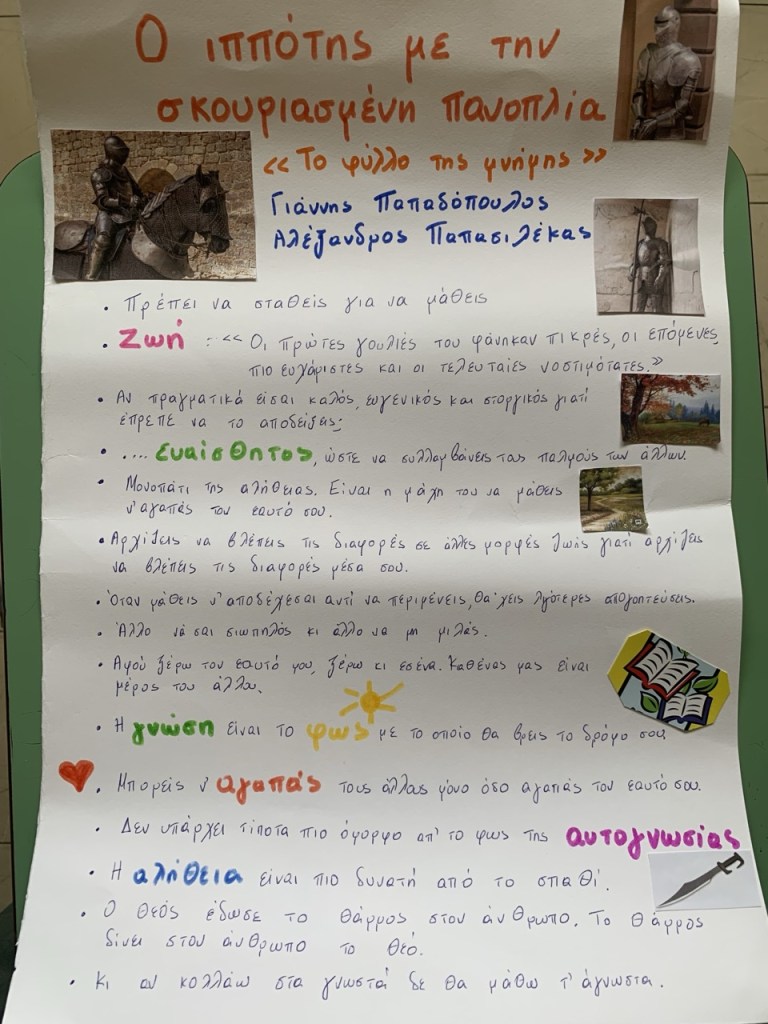 Ο ιππότης με την
σκουριασμένη πανοπλία
«Το φύλλο της μνήμης»
Γιάννης Παπαδόπουλος
Αλέξανδρος Παπασιλέκας
• Πρέπει να σταθείς για να μάθεις
• Ζωή : «Οι πρώτες γουλιές του φάνηκαν πικρές, οι επόμενες
πιο ευχάριστες και οι τελευταίες νοστιμότατες.»
• Αν πραγματικά είσαι καλός, ευγενικός και στοργικός γιατί
έπρεπε να το αποδείξεις;
• .... ευαίσθητος, ώστε να συλλαμβάνεις τους παλμούς των άλλων.
• Μονοπάτι της αλήθειας. Είναι η μάχη του να μάθεις
ν'αγαπάς τον εαυτό σου.
• Αρχίζεις να βλέπεις τις διαφορές σε άλλες μορφές ζωής γιατί αρχίζεις
να βλέπεις τις διαφορές μέσα σου.
• Όταν μάθεις ν'αποδέχεσαι αντί να περιμένεις, θα'χεις λιγότερες απογοητεύσεις.
• Άλλο νά σαι σιωπηλός κι άλλο να μη μιλάς.
• Αφού ξέρω τον εαυτό μου, ξέρω κι εσένα. Καθένας μας είναι
μέρος του άλλου.
• Η γνώση είναι το φως με το οποίο θα βρεις το δρόμο σου.
• Μπορείς ν'αγαπάς τους άλλους μόνο όσο αγαπάς τον εαυτό σου.
• Δεν υπάρχει τίποτα πιο όμορφο απ'το φως της αυτογνωσίας
• Η αλήθεια είναι πιο δυνατή από το σπαθί.
• Ο Θεός έδωσε το θάρρος στον άνθρωπο. Το θάρρος
δίνει στον άνθρωπο το Θεό.
• Κι αν κολλάω στα γνωστά δε θα μάθω τ'άγνωστα.